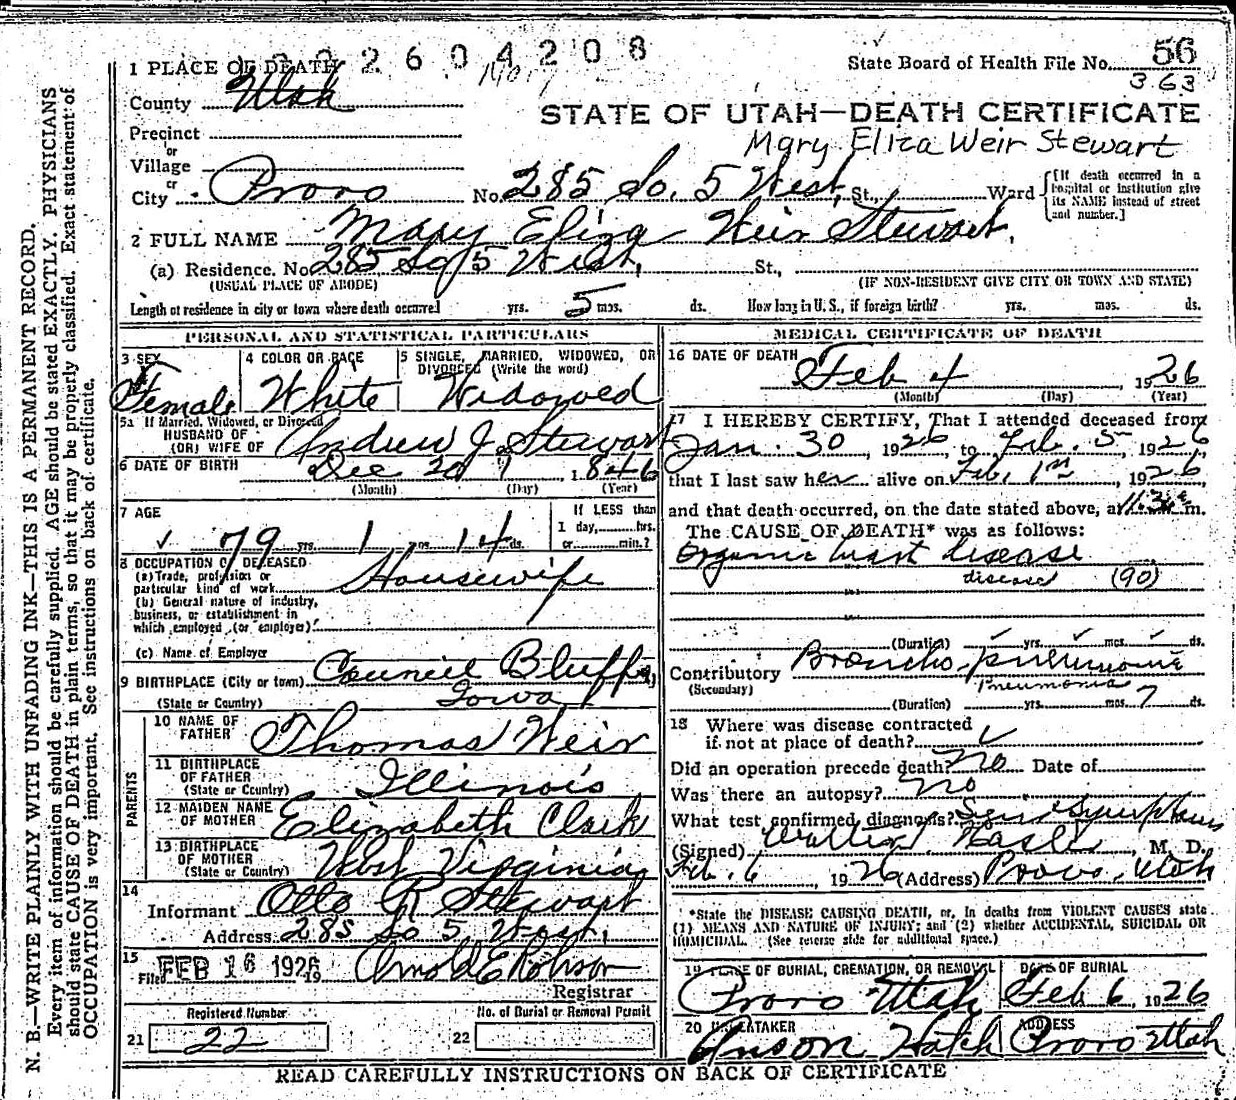 2604208
1 PLACE OF DEATH
State Board of Health File No. 56
363
County Utah
STATE OF UTAH—DEATH CERTIFICATE
Precinct
or
Mary Eliza Weir Stewart
Village
or
City Provo No. 285 So. 5 West, St., Ward
[If death occurred in a hospital or institution give its NAME instead of street and number.]
2 FULL NAME Mary Eliza Weir Stewart.
(a) Residence. No 285 So 5 West, St.,
(USUAL PLACE OF ABODE) (IF NON-RESIDENT GIVE CITY OR TOWN AND STATE)
Length of residence in city or town where death occurred yrs. 5 mos. ds. How long in U. S., if foreign birth? yrs. mos. ds.
PERSONAL AND STATISTICAL PARTICULARS
3 SEX 4 COLOR OR RACE 5 SINGLE, MARRIED, WIDOWED, OR
DIVORCED (Write the word)
Female White Widowed
5a If Married, Widowed, or Divorced
HUSBAND OF
(OR) WIFE OF Andrew J. Stewart
6 DATE OF BIRTH Dec 20 1846
(Month) (Day) (Year)
7 AGE If LESS than
1 day,......hrs.
79 yrs. 1 mos. 14 ds. or......min.?
8 OCCUPATION OF DECEASED
(a) Trade, profession or
particular kind of work Housewife
(b) General nature of industry,
business, or establishment in
which employed (or employer)
(c) Name of Employer
9 BIRTHPLACE (City or town) Council Bluffs,
(State or Country) Iowa
PARENTS
10 NAME OF
FATHER Thomas Weir
11 BIRTHPLACE
OF FATHER
(State or Country) Illinois
12 MAIDEN NAME
OF MOTHER Elizabeth Clark
13 BIRTHPLACE
OF MOTHER
(State or Country) West Virginia
14
Informant Otto R Stewart
Address 285 So 5 West,
15
Filed FEB 16 1926 Arnold E Robison
Registrar
Registered Number No. of Burial or Removal Permit
21 22 22
MEDICAL CERTIFICATE OF DEATH
16 DATE OF DEATH
Feb 4, 1926
(Month) (Day) (Year)
17 I HEREBY CERTIFY, That I attended deceased from
Jan. 30 1926 to Feb. 5 1926,
that I last saw her alive on Feb. 1st, 1926,
and that death occurred, on the date stated above, at 11:30 m.
The CAUSE OF DEATH* was as follows:
Organic heart disease
disease (90)
(Duration) yrs. mos. ds.
Contributory Broncho-pneumonia
(Secondary) Pneumonia
(Duration) yrs. mos. 7 ds.
18 Where was disease contracted
if not at place of death?
Did an operation precede death? No Date of
Was there an autopsy? No
What test confirmed diagnosis? Signs & Symptoms
(Signed) Walter T. Hasler, M. D.
Feb. 6, 1926 (Address) Provo, Utah
*State the DISEASE CAUSING DEATH, or, in deaths from VIOLENT CAUSES state
(1) MEANS AND NATURE OF INJURY; and (2) whether ACCIDENTAL, SUICIDAL OR
HOMICIDAL. (See reverse side for additional space.)
19 PLACE OF BURIAL, CREMATION, OR REMOVAL DATE OF BURIAL
Provo Utah Feb 6, 1926
20 UNDERTAKER ADDRESS
Anson Hatch Provo Utah
READ CAREFULLY INSTRUCTIONS ON BACK OF CERTIFICATE
N. B.—WRITE PLAINLY WITH UNFADING INK—THIS IS A PERMANENT RECORD.
Every item of information should be carefully supplied. AGE should be stated EXACTLY. PHYSICIANS
should state CAUSE OF DEATH in plain terms, so that it may be properly classified. Exact statement of
OCCUPATION is very important. See instructions on back of certificate.